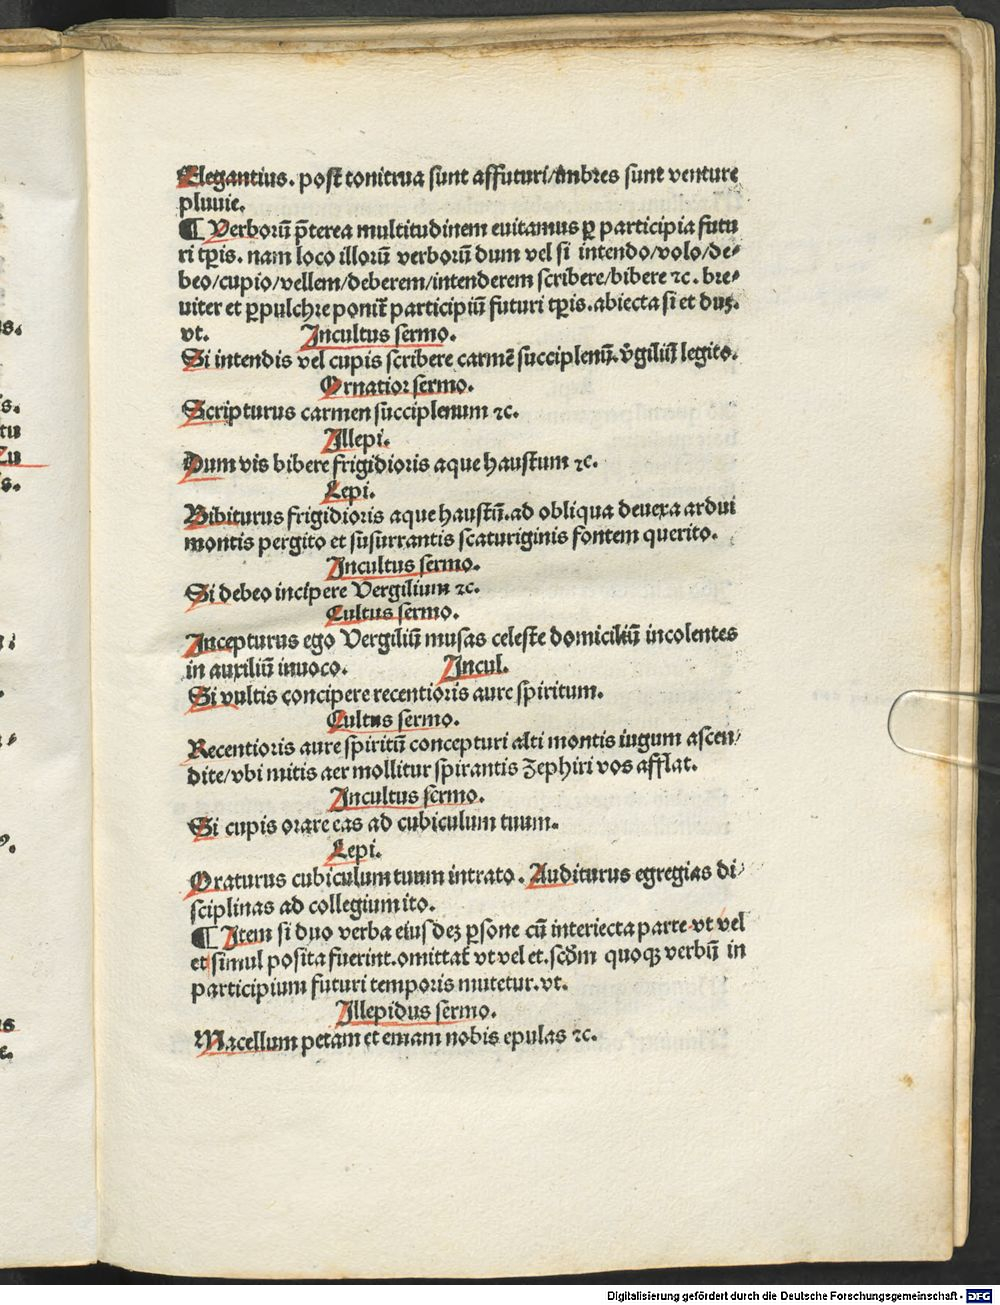 Elegantius. post tonitrua sunt affuturi/imbres sunt venture
pluuie.
¶ Verborū p̄terea multitudinem euitamus ꝑ participia futu
ri tp̄is. nam loco illorū verborū dum vel si intendo/volo/de⸗
beo/cupio/vellem/deberem/intenderem scribere/bibere ⁊c. bre⸗
uiter et ꝑpulchre ponit᷑ participiū futuri tp̄is. abiecta si et duꝫ.
vt. Incultus sermo.
Si intendis vel cupis scribere carmē succiplenū. v̓giliū legito.
Ornatior sermo.
Scripturus carmen succiplenum ⁊c.
Illepi.
Dum vis bibere frigidioris aque haustum ⁊c.
Lepi.
Bibiturus frigidioris aque haustū. ad obliqua deuexa ardui
montis pergito et susurrantis scaturiginis fontem querito.
Incultus sermo.
Si debeo incipere Vergilium ⁊c.
Cultus sermo.
Incepturus ego Vergiliū musas celeste domiciliū incolentes
in auxiliū inuoco. Incul.
Si vultis concipere recentioris aure spiritum.
Cultus sermo.
Recentioris aure spiritū concepturi alti montis iugum ascen/
dite/vbi mitis aer mollitur spirantis Zephiri vos afflat.
Incultus sermo.
Si cupis orare eas ad cubiculum tuum.
Lepi.
Oraturus cubiculum tuum intrato. Auditurus egregias di/
sciplinas ad collegium ito.
¶ Item si duo verba eiusdeꝫ ꝑsone cū interiecta parte vt vel
et simul posita fuerint. omittat᷑ vt vel et. scd̄m quoqꝫ verbū in
participium futuri temporis mutetur. vt.
Illepidus sermo.
Macellum petam et emam nobis epulas ⁊c.
Digitalisierung gefördert durch die Deutsche Forschungsgemeinschaft - DFG